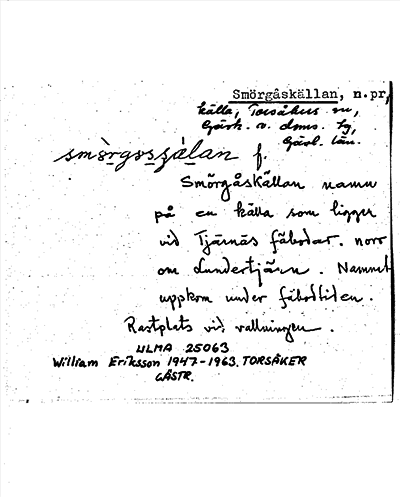 Smörgåskällan, n.pr,
källa, Torsåkers sn,
Gästr. ö. doms. hg,
Gävl. län.
smòrgosʒálan f.
Smörgåskällan namn
på en källa som ligger
vid Tjärnäs fäbodar. norr
om Lundertjärn. Namnet
uppkom under fäbodtiden.
Rastplats vid vallningen.
ULMA 25063
William Eriksson 1947-1963. TORSÅKER
GÄSTR.